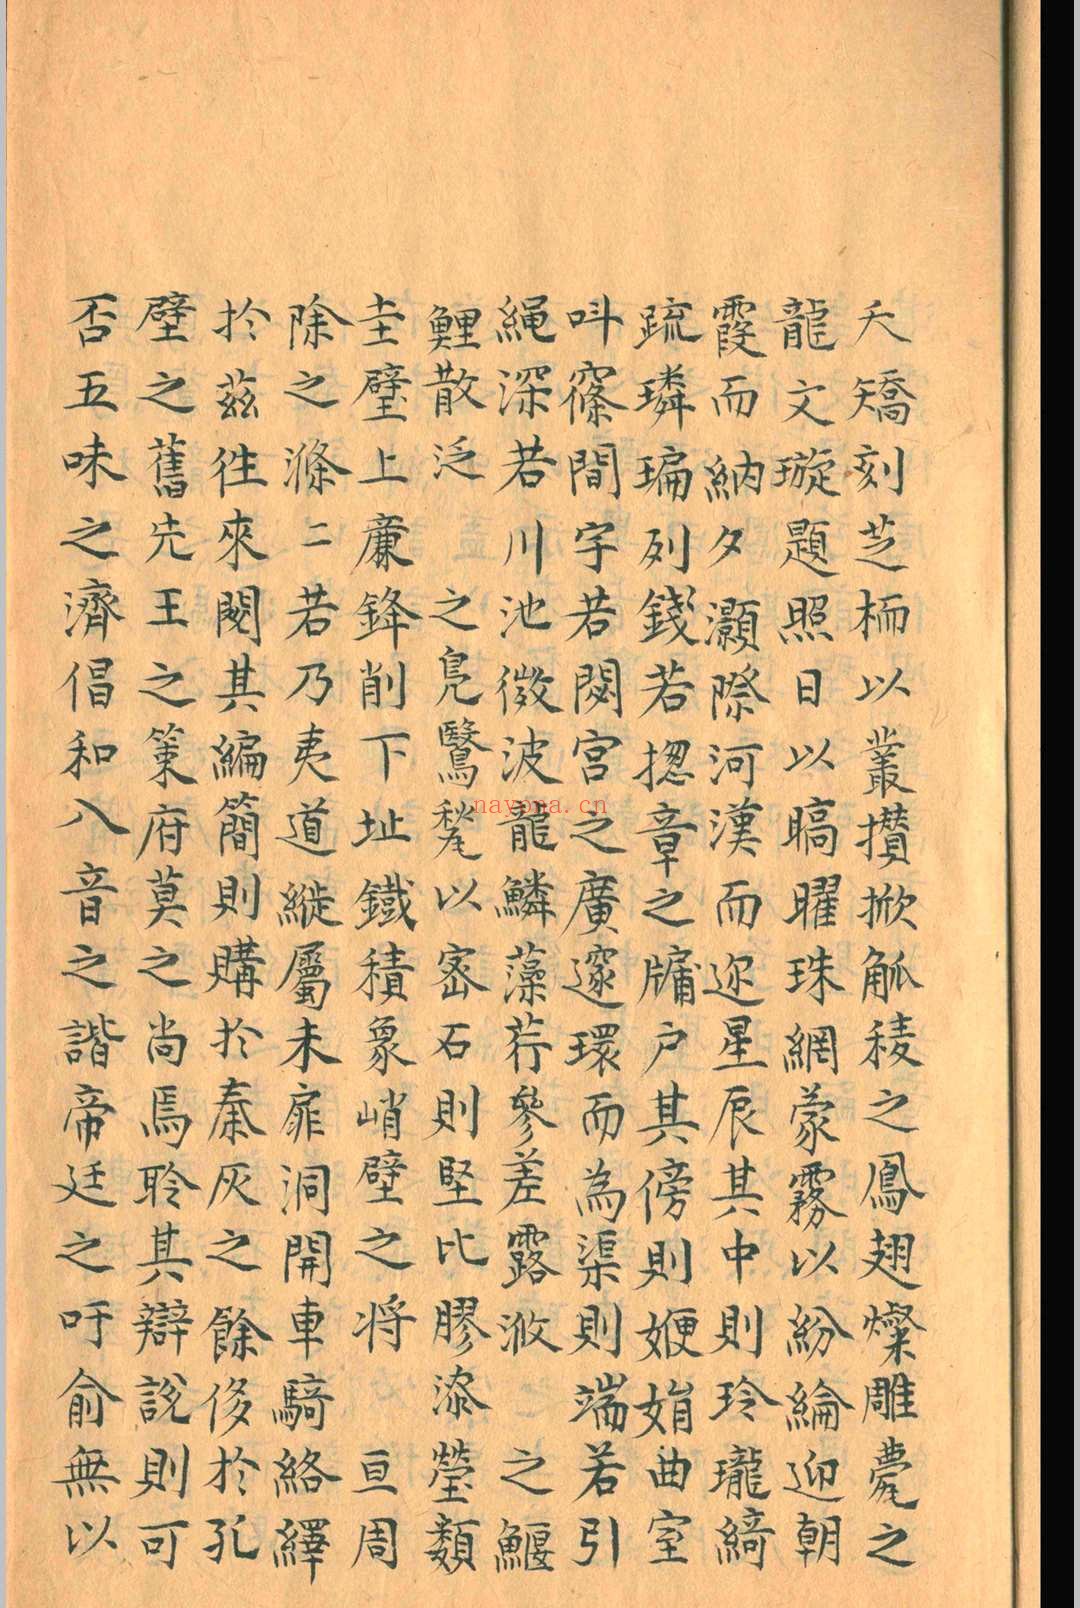 夭矯刻芝栭以叢攢掀觚稜之鳳翅燦雕甍之
龍文璇題照日以暠曜珠網蒙霧以紛綸迎朝
霞而納夕灝際河漢而迩星辰其中則玲瓏綺
疏璘㻞列錢若揔章之牖户其傍則娿娟曲室
呌窱間字若閟宮之廣邃環而為渠則端若引
繩深若川池微波龍鱗藻荇參差露滺之鰋
鯉散泛之鳧鷖甃以密石則堅比膠漆瑩類
圭璧上廉鋒削下址鐵積象峭壁之将亘周
除之滌二若乃夷道縰屬未扉洞開車騎絡繹
於茲徃來閱其編簡則購於秦灰之餘侈於孔
壁之舊先王之策府莫之尚焉聆其辯說則可
否五味之濟倡和八音之諧帝廷之吁俞無以
nayona.cn